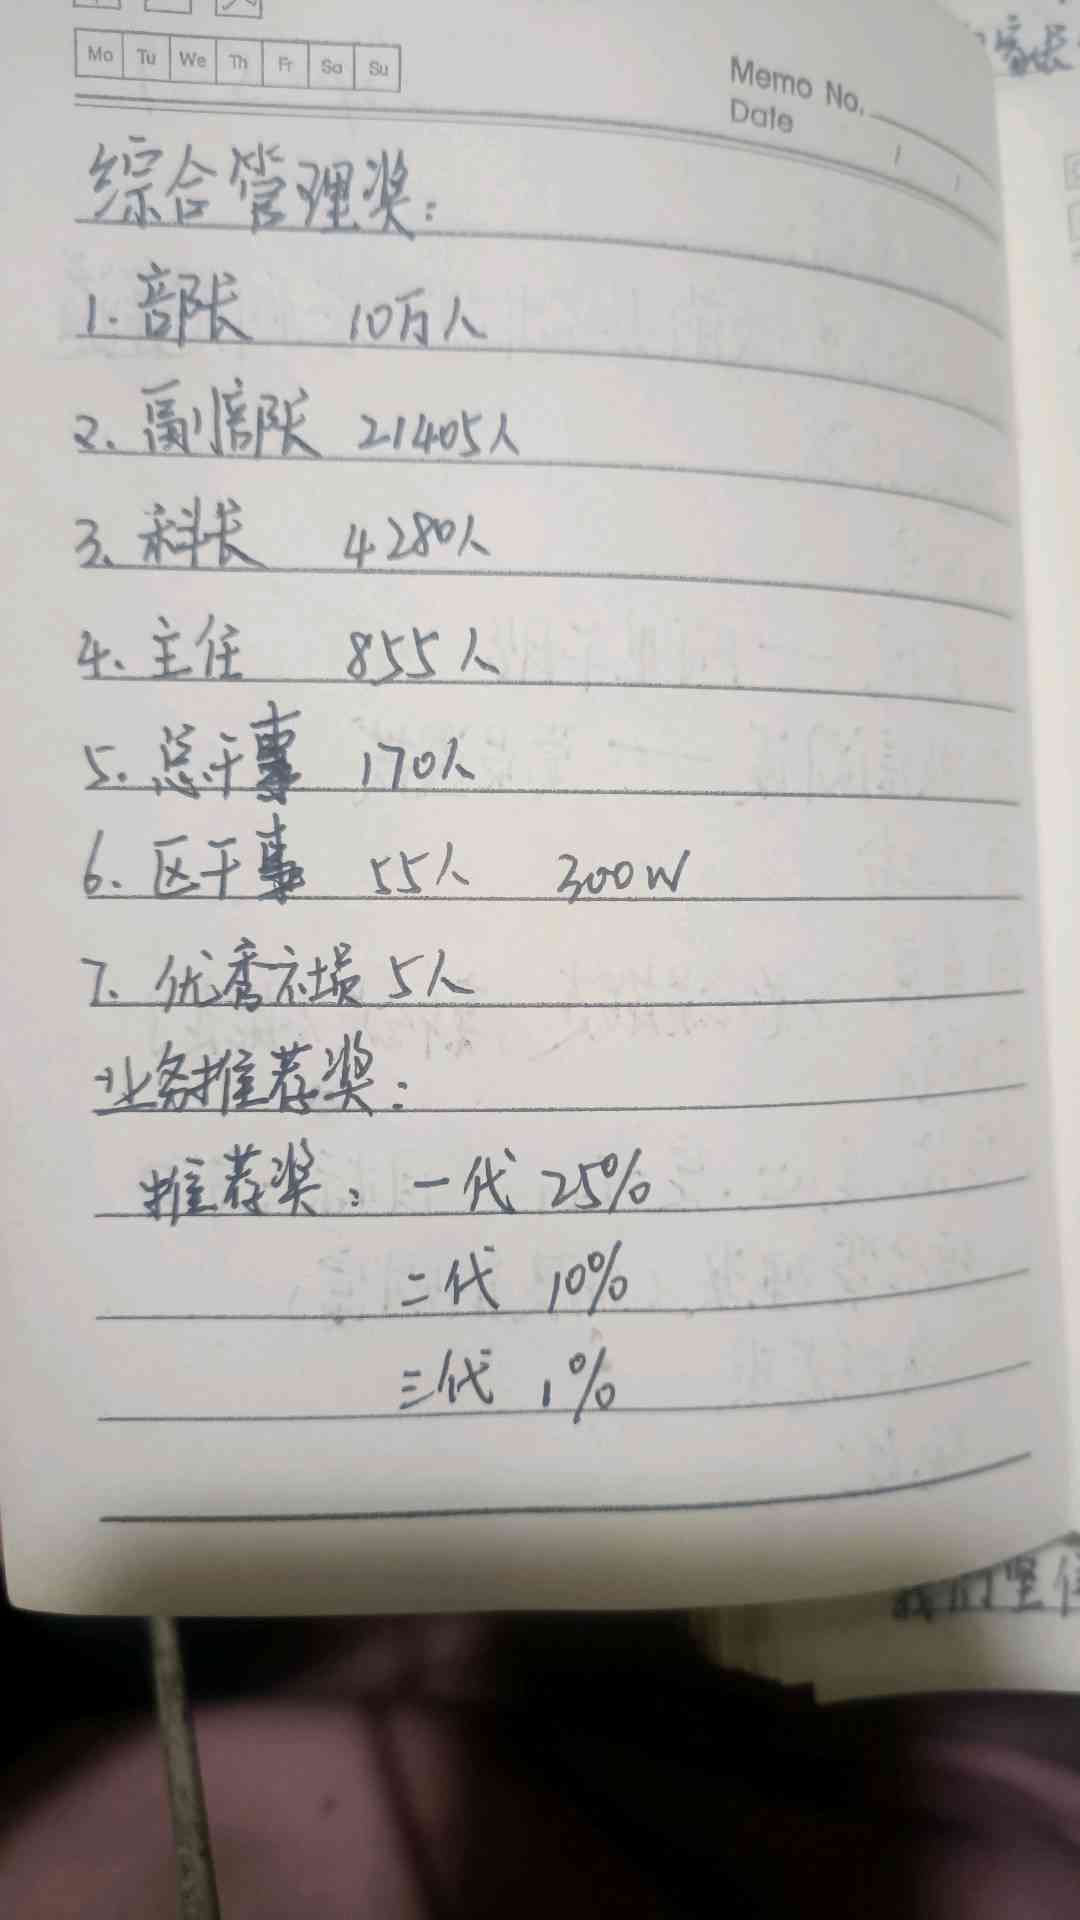 Mo Tu We Th Fr Sa Su
Memo No.
Date / /
综合管理奖：
1. 部长 10万人
2. 副部长 21405人
3. 科长 4280人
4. 主任 855人
5. 总干事 170人
6. 区干事 55人 300W
7. 优秀社员 5人
业务推荐奖：
推荐奖：一代 25%
二代 10%
三代 1%
我们坚信